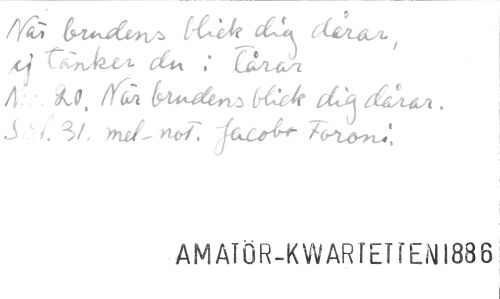 När brudens blick dig dårar,
ej tänker du i tårar
No. 20. När brudens blick dig dårar.
Sid. 31. mel-not. Jacobo Foroni.
AMATÖR-KWARTETTEN 1886